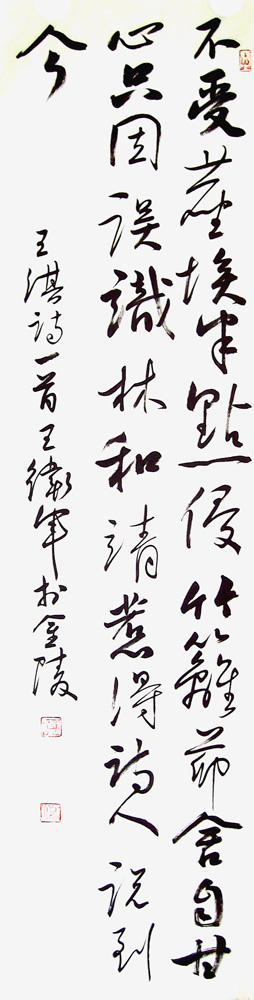 不受塵埃半點侵竹籬茆舍自甘
心只因誤識林和靖惹得詩人説到
今
王淇詩一首王軍於金陵